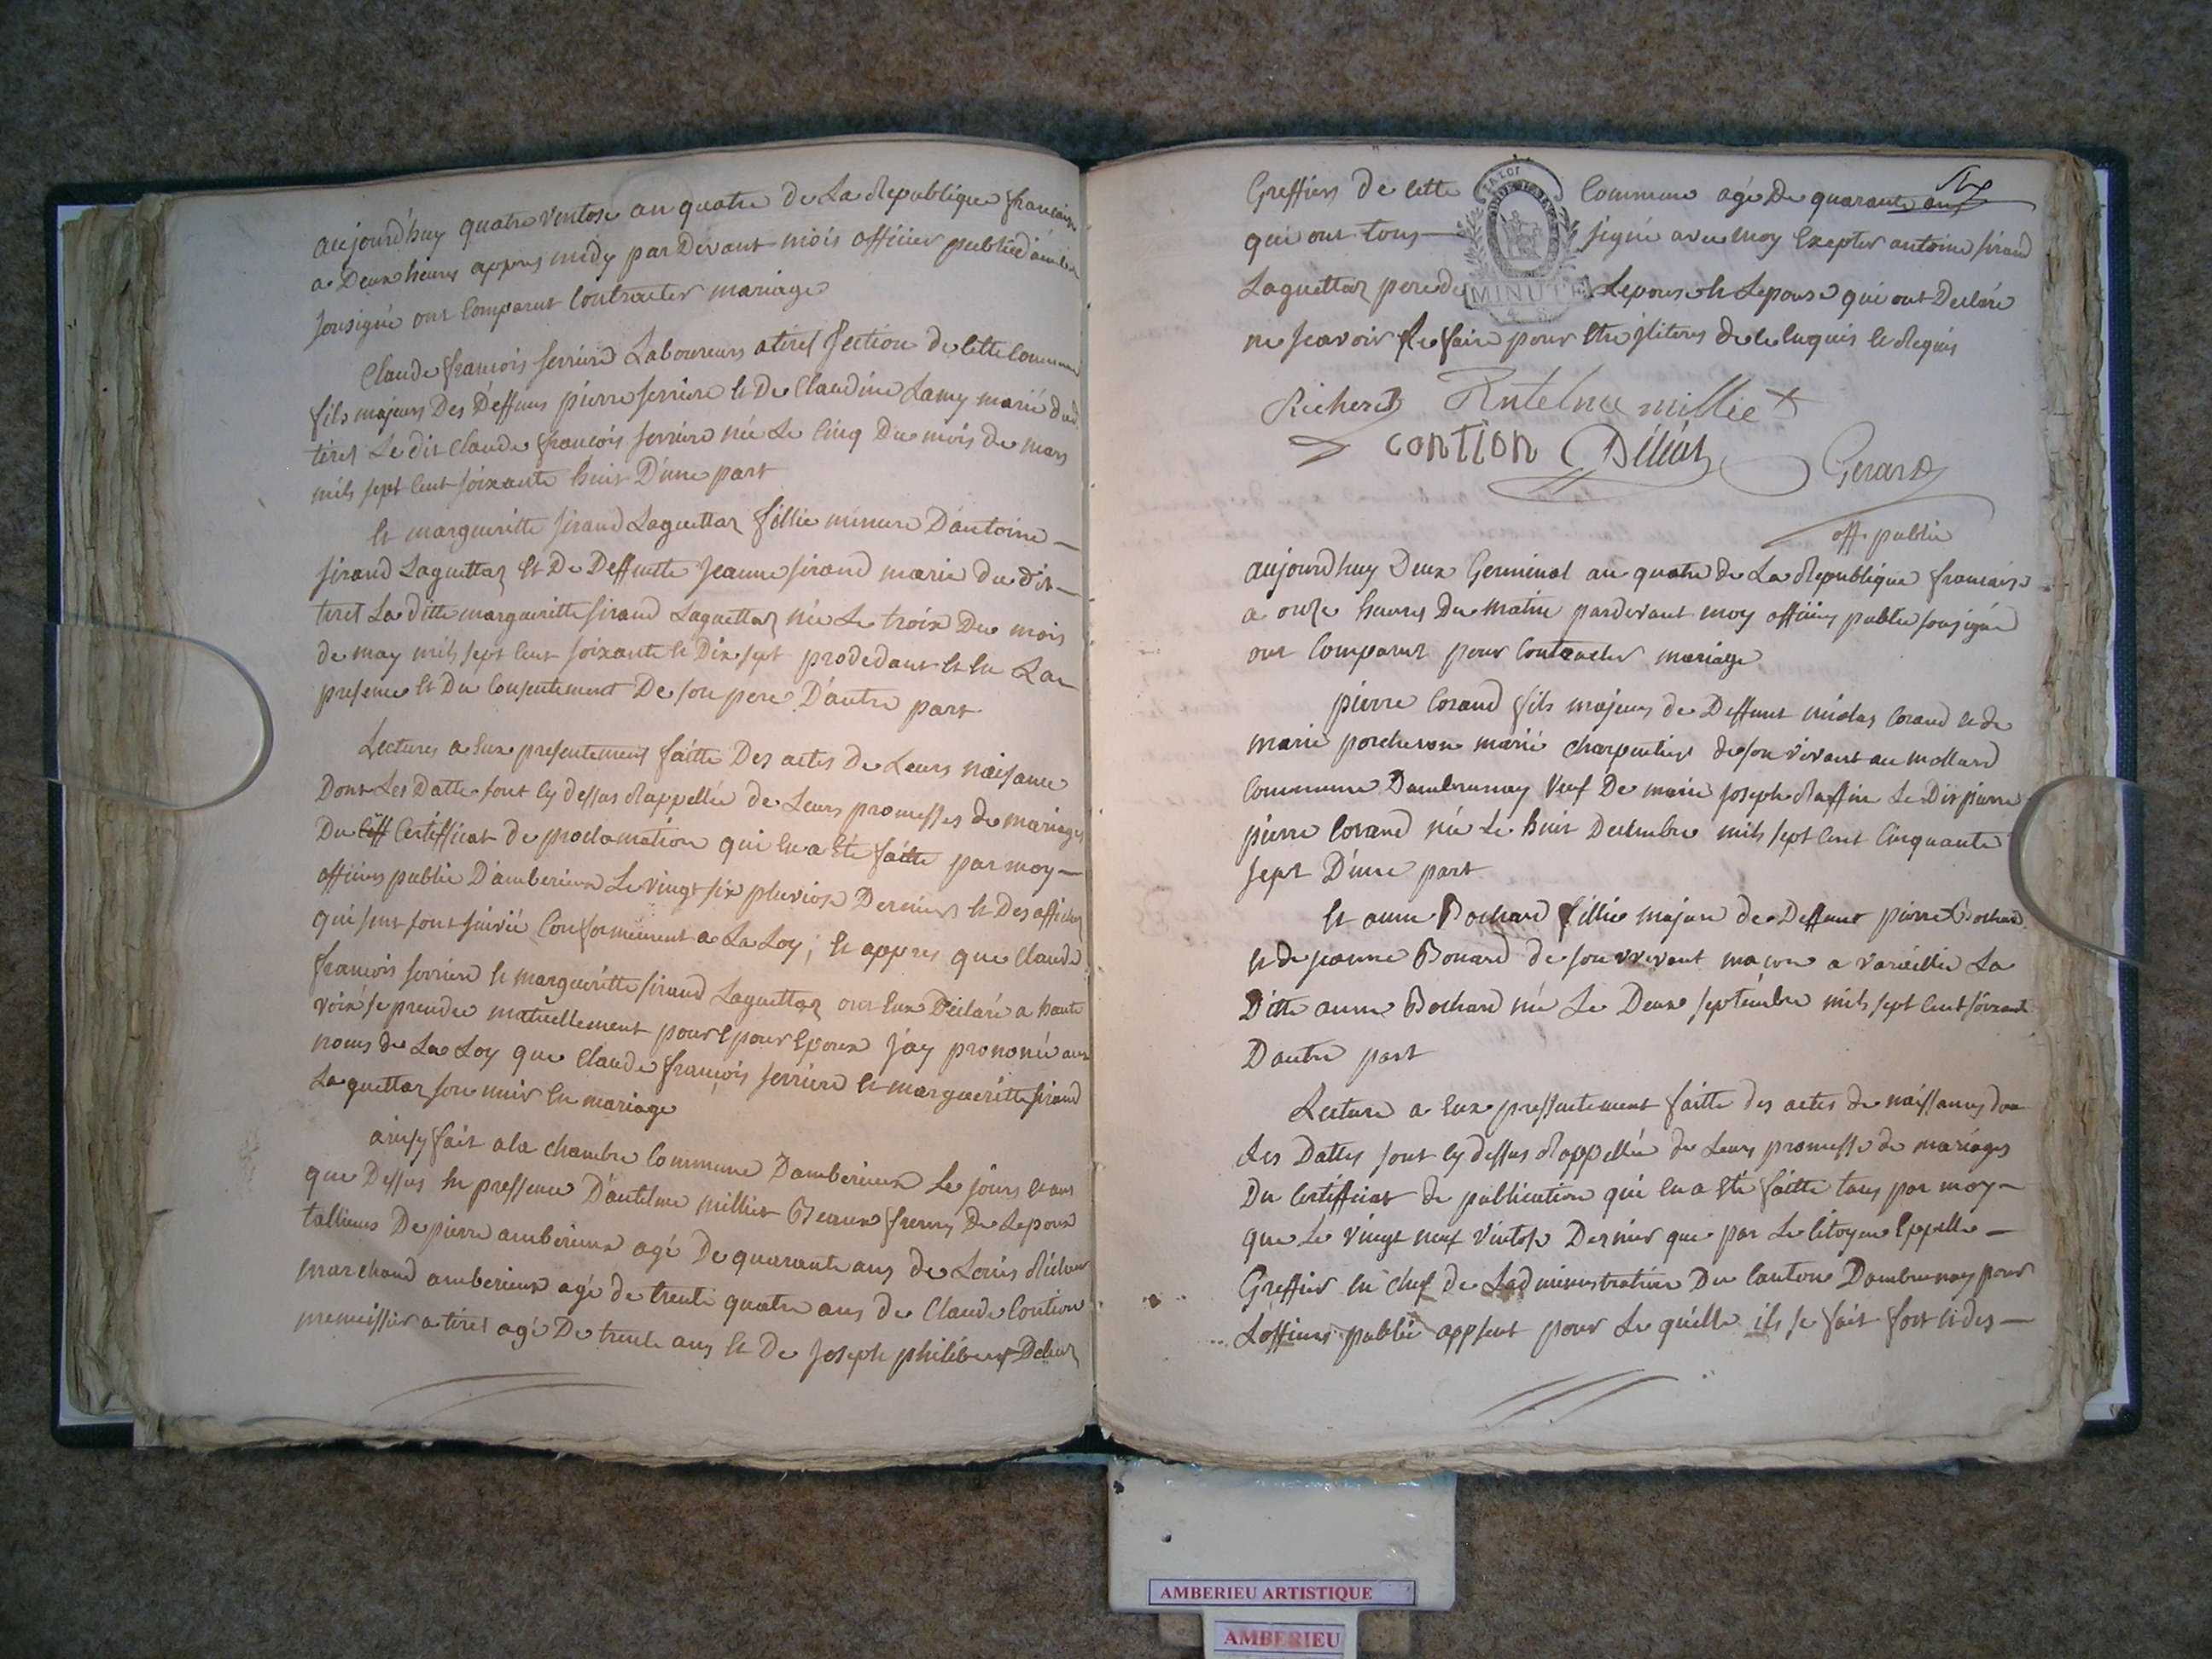 aujourd'huy quatre ventose an quatre de La Republique francaise
a Deux heures appres midy par Devant mois officier public d'amber
sousigné ont Comparut Contracter mariage
Claude francois serriere Laboureurs a tiret section de Cette Commune
fils majeurs Des Deffuns pierre serriere et De Claudine Lamy marié dud
tiret Le dit Claude francois serriere née Le Cinq Du mois de mars
mils sept Cent soixante huit D'une part
et margueritte sirand Laguettaz fillie mineure D'antoine
sirand Laguettaz et De Deffuntte Jeanne sirand marie du dit
tiret La ditte margueritte sirand Laguettaz née Le troix Du mois
de may mils sept Cent soixante et Dix sept prodedant et en La
presence et Du Consentement De son pere D'autre part
Lectures a Eux presentement faitte Des actes de Leurs naisance
Dont Les Datte sont Cy dessus Rappellée de Leurs promesses de mariages
Du Ceff Certifficat de proclamation qui en a Eté faitte par moy
officiers public D'amberieux Le vingt six pluviose Derniers et Des affiches
qui sent sont suivié Conformement a La Loy ; et appres que Claude
francois serriere et margueritte sirand Laguettaz ont Eux Déclaré a haute
voix se prendre mutuellement pour Epour Epoux J'ay prononcé aux
noms de La Loy que Claude francois serriere et margueritte sirand
Laguettaz son unir en mariage
ainsy fait a la chambre Commune D'amberieux Le jours et ans
que Dessus En pressence D'antelme milliet Beaux freres De Lepoux
tallieurs De pierre amberieux agé De quarante ans de Louis Richer
marchand amberieux agé de trente quatre ans de Claude Contion
a tiret agé De trente ans et De Joseph philibert Deliat
Greffiers de Cette Commune agé De quarante ans
qui ont tous signé avec moy Excepter antoine sirand
Laguettaz pere de Lepouse et Lepouse qui ont Declaré
ne scavoir Le faire pour Etre Iliterés de Ce Enquis et Requis
LA LOI
MINUTE
Richerd Antelme milliet
contion Déliat Gerard
off. public
aujourdhuy Deux Germinal an quatre de La Republique francaise
a onze heures Du Matin pardevant moy officiers public sousigné
ont Comparut pour Contracter mariage
pierre Corand fils majeurs de Deffunt nicolas Corand et de
marie porcheron marié charpentier de son vivant au mollard
Commune Dambrunay Veuf De marie joseph Raffin Le Dit pierre
pierre Corand née Le huit Decembre mils sept Cent Cinquante
sept D'une part
Et anne Bochard fillie majure de Deffunt pierre Bochard
et de jeanne Bonard de son vivant macon a vareillie La
Ditte anne Bochard née Le Deux septembre mils sept Cent soixante
Dautre part
Lecture a Eux pressentement faitte des actes de naissances don
Les Dattes sont Cy dessus Rappellée de Leurs promesse de mariages
Du Certifficat de publication qui en a Eté faitte tans par moy
que Le vingt neuf ventose Dernier que par Le Citoyen Eppelle
Greffier en chef de Ladministration Du Canton Dambrunay pour
Lofficiers public appsent pour Le quelle ils se fait fort et des
AMBERIEU ARTISTIQUE
AMBERIEU